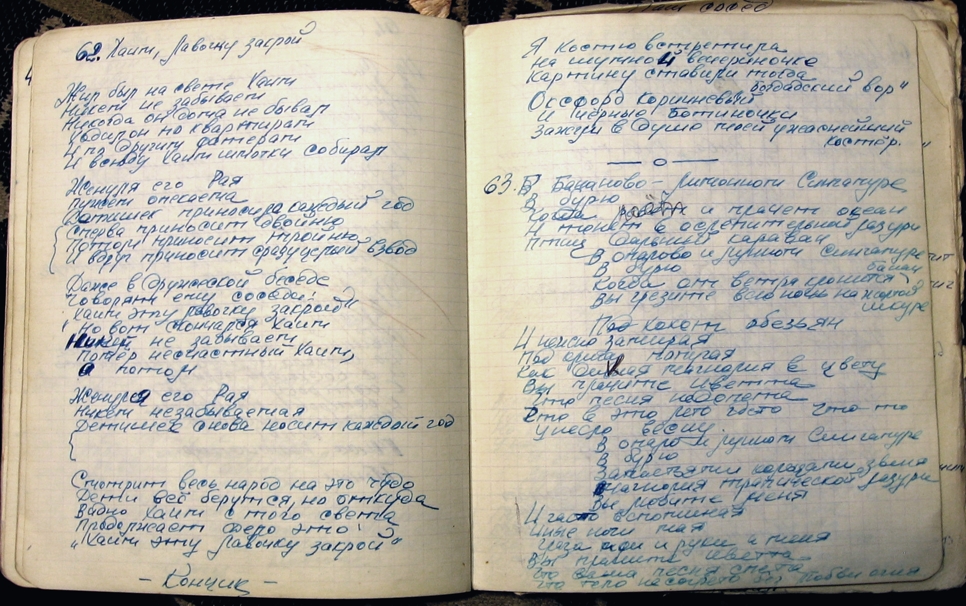 62. Хаим, лавочку закрой
Жил был на свете Хаим
Никем не забываем
Никогда он дома не бывал
Ходил он по квартирам
И по другим
И всюду Хаим шмотки собирал
Женушка его Рая
Мужем
Детишек приносила каждый год
Сперва приносит двойню
Потом приносит тройню
И вдруг приносит сразу целый взвод
Даже в дружеской беседе
Говорят ему соседи:
"Хаим эту лавочку закрой"
Но вот скончался Хаим
Никем не забываем
Помер несчастный Хаим,
а потом
Женушка его Рая
Никем незабываемая
Детишек снова носит каждый год
Смотрит весь народ на это чудо
Дети всё берутся, но откуда
Видно Хаим с того света
Продолжает дело это!
"Хаим эту лавочку закрой"
– Кончик –
Я Костю встретила
На шумной вечериночке
Картину ставили тогда
"Богдадский вор"
Оксфорд коричневый
И черные ботиночки
Зажгли в душе моей ужаснейший
костер."
— о —
63. В Бананово-лимонном Сингапуре
В бурю
Когда и плачет океан
И тонет в ослепительной лазури
Птиц дальний караван
В опалово и лунном Сингапуре
В бурю
Когда от ветра банан
Вы грезите всю ночь на желтой
шкуре
Под хохот обезьян
И нежно замирая
Под крики попугая
Как дикая магнолия в цвету
Вы плачете Иветта
Что песня недопета
Что в это лето где-то что то
унесло весну.
В опало и лунном Сингапуре
В бурю
Запястьями и звеня
Магнолия тропической лазури
Вы любите меня
И часто вспоминая
Иные ночи мая
и руки и меня
Вы плачете Иветта
Что ваша песня спета